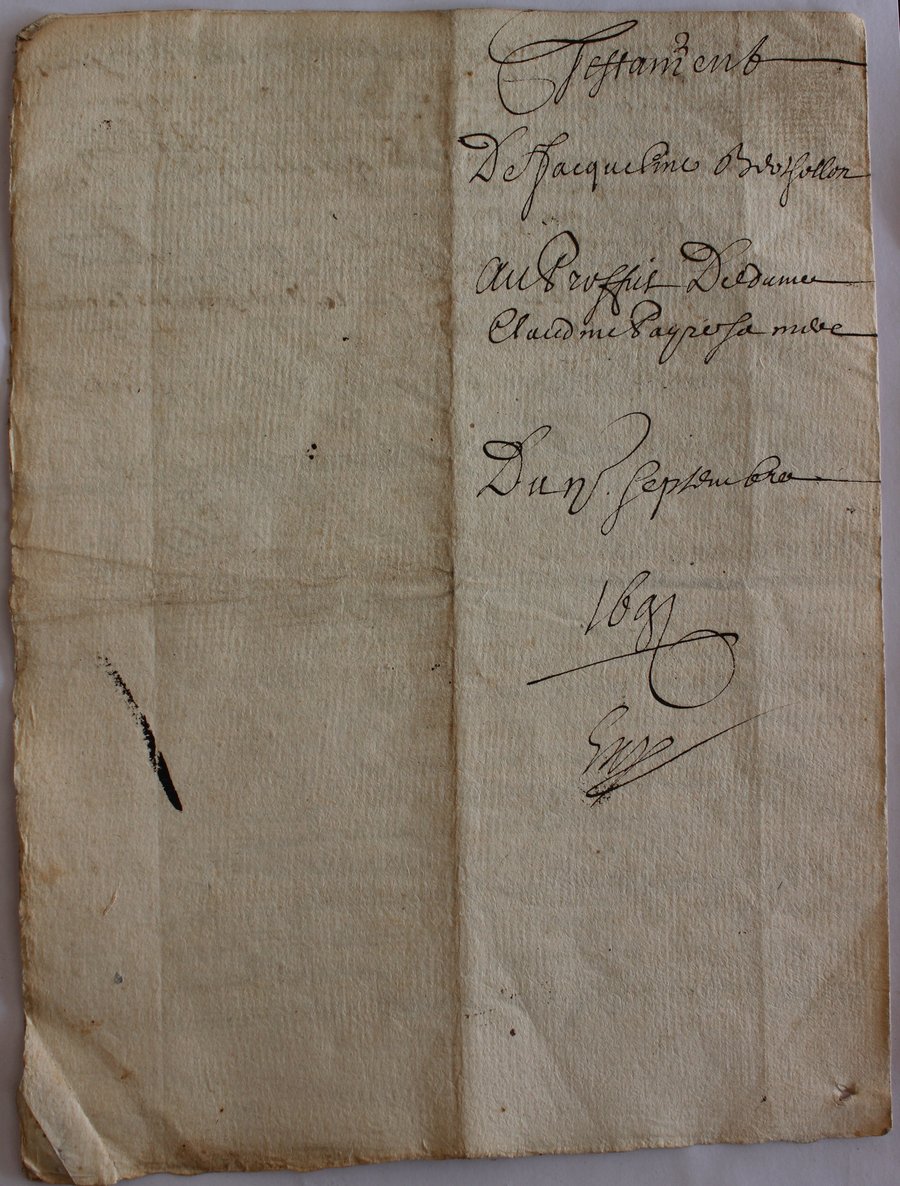 Testament
De Jacqueline Berthollon
au Proffit De dame
Claudine Payre sa mere
Du septembre
169